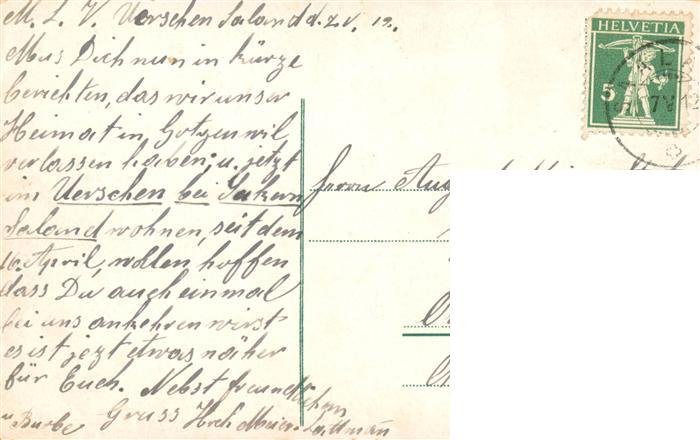 M. L. V. Uerschen Saland d. 7. V. 12.
Mus Dich nun in kürze
berichten, das wir unser
Heimat in Gotzenwil
verlassen haben, u. jetzt
im Uerschen bei
Saland wohnen, seit dem
10. April, wollen hoffen
dass Du auch einmal
bei uns ankehren wirst
es ist jezt etwas näher
für Euch. Nebst freundlichem
Gruss Hch Meier-
HELVETIA
5
Herrn